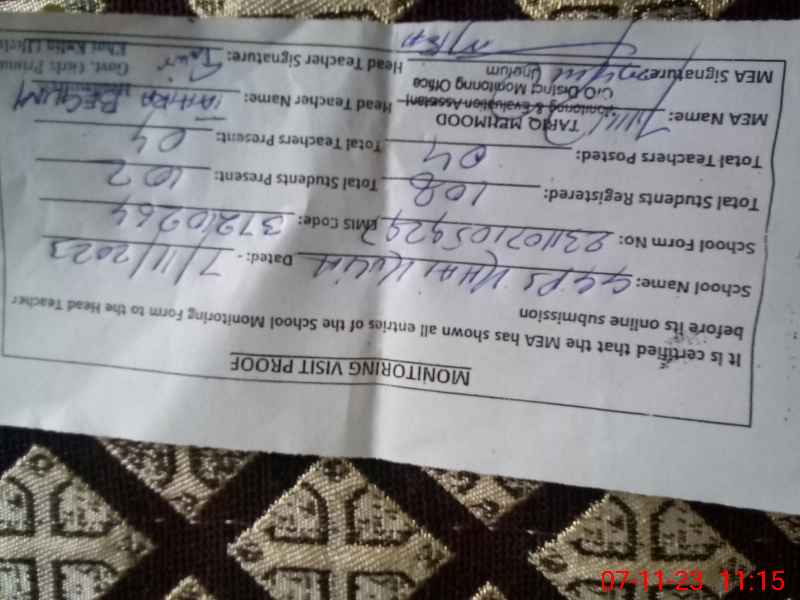 MONITORING VISIT PROOF
It is certified that the MEA has shown all entries of the School Monitoring Form to the Head Teacher
before its online submission
School Name: GGPS KHAI KULIA Dated: - 7/11/2023
School Form No: 231107105929 EMIS Code: 37210264
Total Students Registered: 108 Total Students Present: 102
Total Teachers Posted: 04 Total Teachers Present: 04
MEA Name: TARIQ MEHMOOD Head Teacher Name: TAHIRA BEGUM
Monitoring & Evaluation Assistant
C/O District Monitoring Office
MEA Signature: Head Teacher Signature:
Govt. Girls Primary
07-11-23 11:15